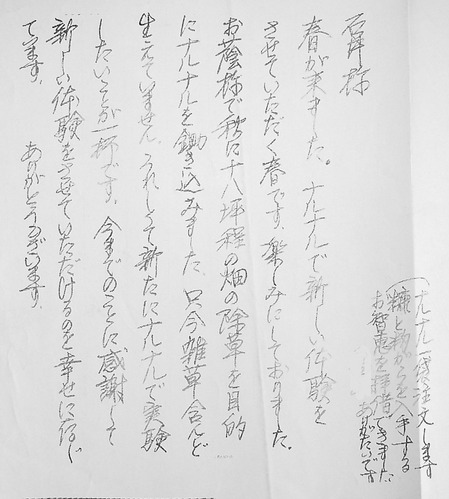 石坪様
春が来ました。ナルナルで新しい体験を
させていただく春です。楽しみにしておりました。
お蔭様で秋に十八坪程の畑の除草を目的
にナルナルを鋤き込みました。只今雑草含んど
生えていません。うれしくて新たにナルナルで実験
したいことが一杯です。今までのことに感謝して
新しい体験をさせていただけるのを幸せに存じ
ています。 ありがとうございます。
ナルナル一袋注文します
糠と籾がらを入手する
お智恵を拝借できました
ありがたいです